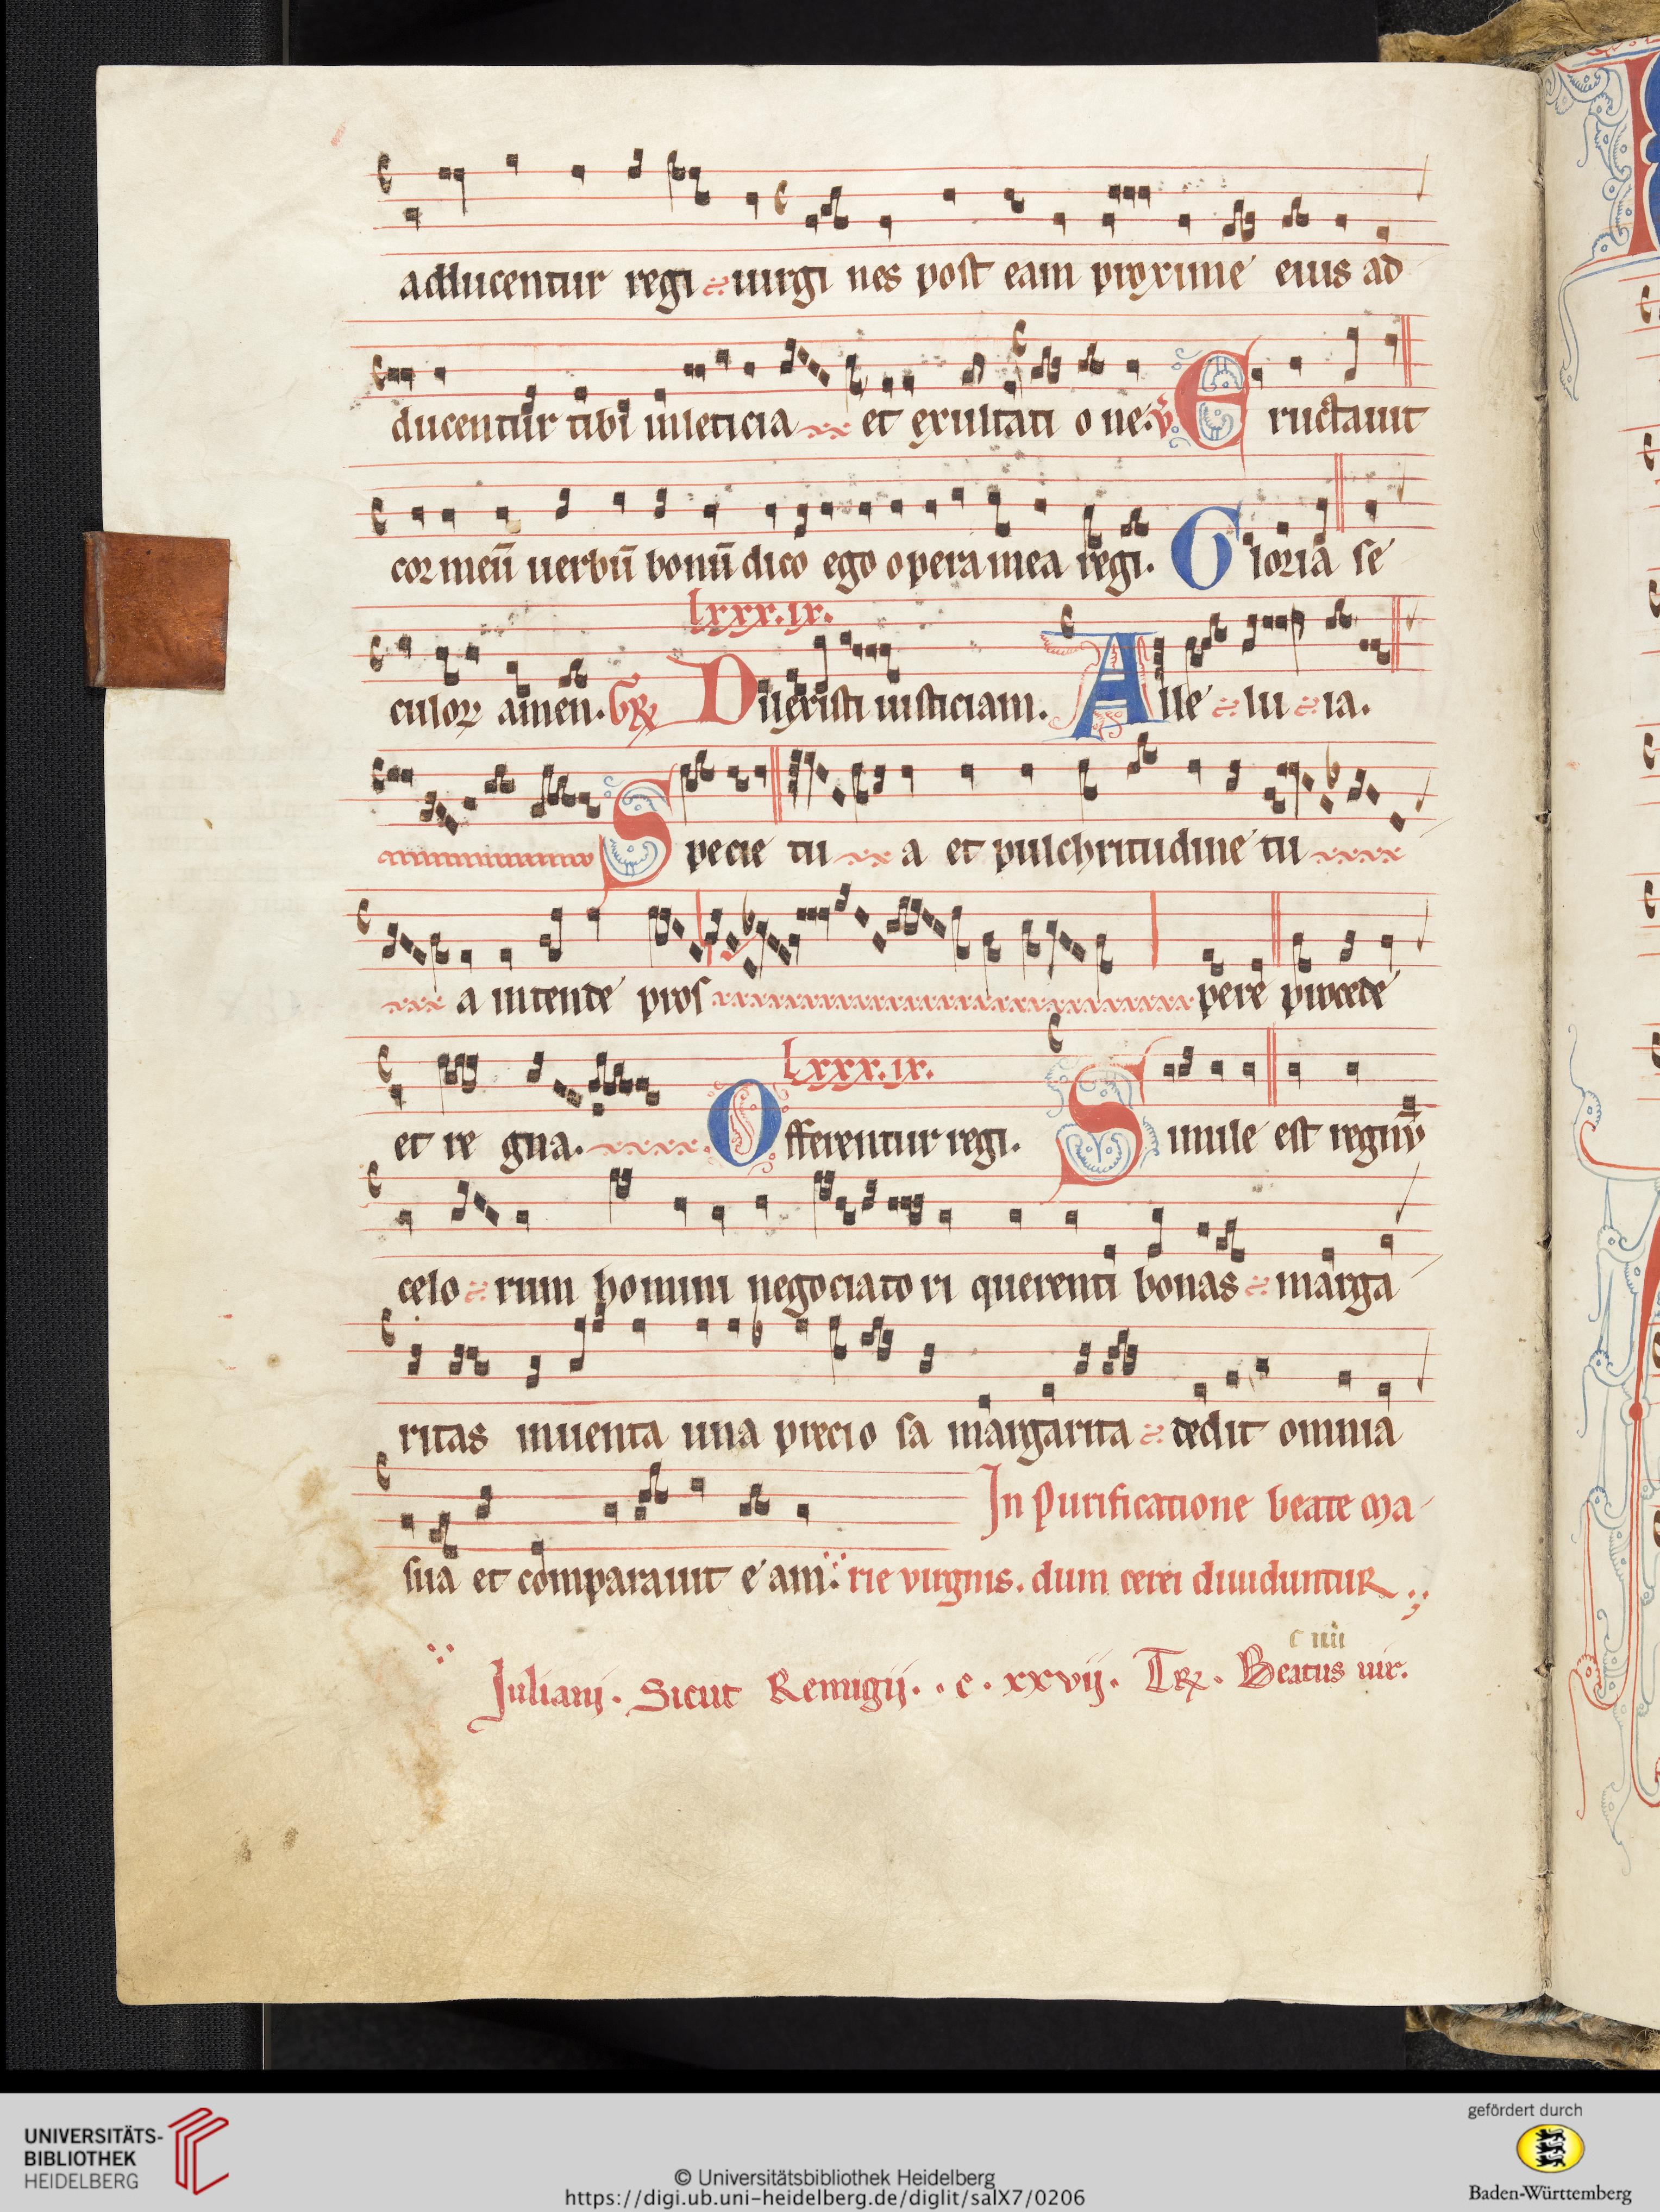 adducentur regi uirgi nes post eam proxime eius ad
ducentur tibi in leticia et exultati o ne. ℣ E ructauit
cor meū uerbū bonū dico ego opera mea regi. Gloria se
lxxx.ix.
culoꝝ amen. Gꝶ Dilexisti iusticiam. Alle lu ia.
Specie tu a et pulchritudine tu
a intende pros pere procede
lxxx.ix.
et re gna. Offerentur regi. Simile est regnū
celo rum homini negociato ri querenti bonas marga
ritas inuenta una precio sa margarita dedit omnia
In Purificatione beate Ma
sua et comparauit e am. rie virginis. dum cerei diuiduntur
c iiii
Juliani. Sicut Remigij. . c . xxvij. Tꝶ. Beatus uir.
UNIVERSITÄTS-
BIBLIOTHEK
HEIDELBERG
© Universitätsbibliothek Heidelberg
https://digi.ub.uni-heidelberg.de/diglit/salX7/0206
gefördert durch
Baden-Württemberg